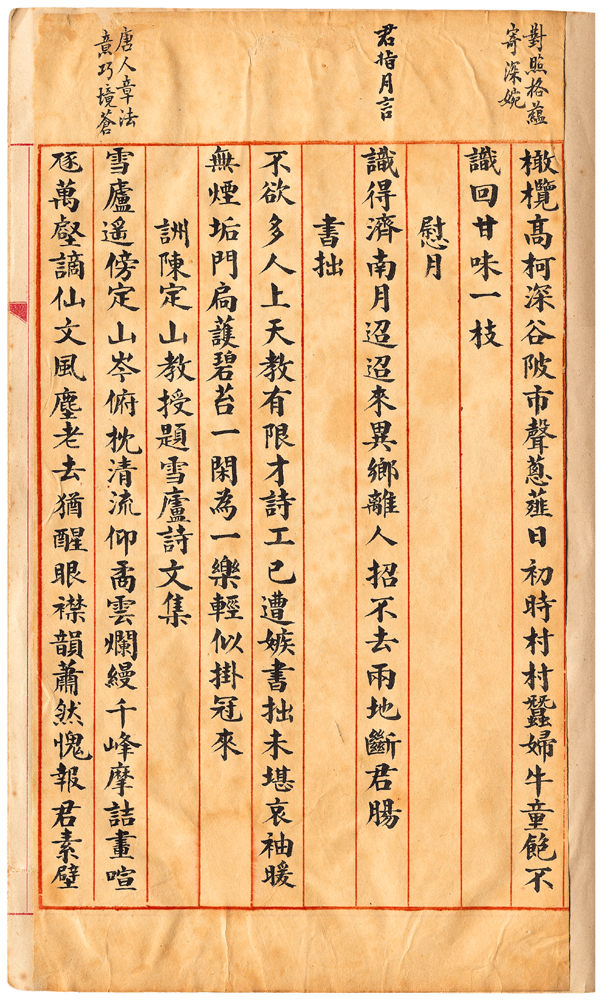 對照格蘊
寄深婉
橄欖高柯深谷陂市聲蔥薤日初時村村蠶婦牛童飽不
識回甘味一枝
慰月
君指月言
識得濟南月迢迢來異鄉離人招不去兩地斷君腸
書拙
不欲多人上天教有限才詩工已遭嫉書拙未堪哀袖暖
無煙垢門扃護碧苔一閑為一樂輕似掛冠來
詶陳定山教授題雪廬詩文集
唐人章法
意巧境蒼
雪廬遙傍定山岑俯枕清流仰矞雲爛縵千峰摩詰畫喧
豗萬壑謫仙文風塵老去猶醒眼襟韻蕭然愧報君素壁